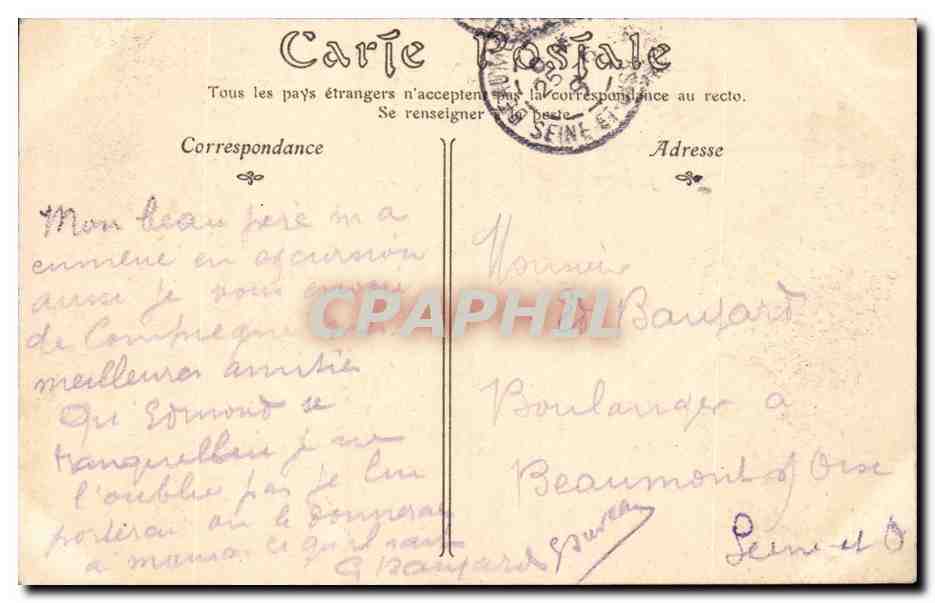 Carte Postale
Tous les pays étrangers n'acceptent pas la correspondance au recto.
Se renseigner poste
SEINE-ET-OISE
25
Correspondance
Adresse
Mon beau père m a
emmené en excursion
aussi je vous envoie
de Compiegne
meilleures amitiés
Qu Edmond se
tranquillise je ne
l'oublie pas je lui
porterai ou le donnerai
a maman ce qu'il
G Bangard
Monsieur
Bangard
Boulanger a
Beaumont s/ Oise
Seine et O
CPAPHIL